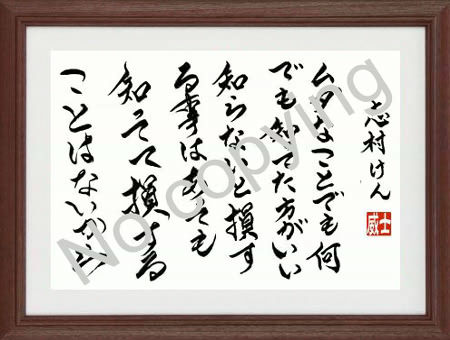 志村けん
ムダなことでも何
でも知ってた方がいい
知らないと損す
る事はあっても
知って損する
ことはないから
士威
No copying